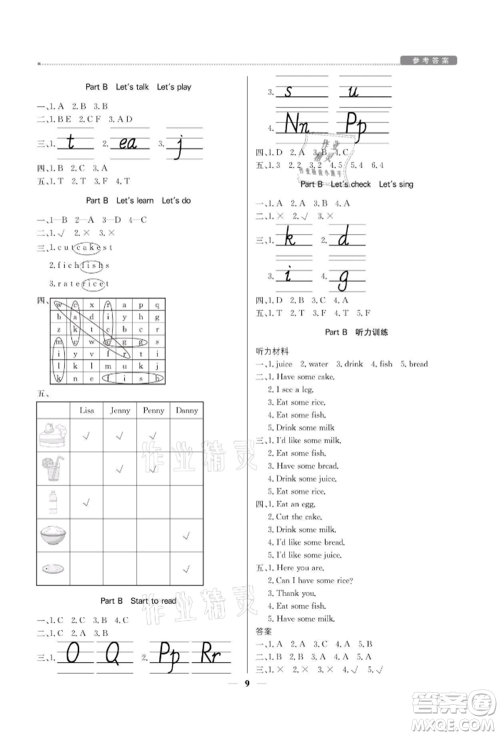 参考答案
Part B Let's talk Let's play
一、1. A 2. B 3. B
二、1. B E 2. C F 3. A D
三、1. t 2. ea j
四、1. B 2. C 3. A
五、1. T 2. T 3. F 4. T
Part B Let's learn Let's do
一、1—B 2—A 3—D 4—C
二、1. √ 2. × 3. √
三、1. cutcakest
2. fichfishs
3.ratericet
四、
五、
Lisa Jenny Penny Danny
√
√ √
√
√
√ √
Part B Start to read
一、1. C 2. C 3. B 4. C
二、1. C 2. C 3. A
三、1. O Q 2. Pp Rr
3. s u
4. Nn Pp
四、1. D 2. A 3. B 4. C
Part B Let's check Let's sing
一、1. A 2. B 3. C 4. B
二、1. × 2. × 3. √
三、1. k 2. d
3. i 4. g
四、1. D 2. A 3. C 4. B
五、1. T 2. F 3. T 4. F
Part B 听力训练
听力材料
一、1. juice 2. water 3. drink 4. fish 5. bread
二、1. Have some cake.
2. I see a leg.
3. Eat some rice.
4. Eat some fish.
5. Drink some milk.
三、1. I'd like some milk.
2. Eat some rice.
3. I'd like some fish.
4. Have some bread.
5. Drink some juice.
四、1. Eat an egg.
2. Cut the cake.
3. Drink some milk.
4. I'd like some bread.
5. Have some juice.
五、1. Here you are.
2. Can I have some rice?
3. Thank you.
4. Eat some bread.
5. I'd like some milk.
答案
一、1. A 2. A 3. B 4. A 5. B
二、1. A 2. B 3. B 4. A 5. B
三、1. × 2. × 3. √ 4. × 5. √
9
作业精灵
作业精灵
答案圈
MXQE.COM